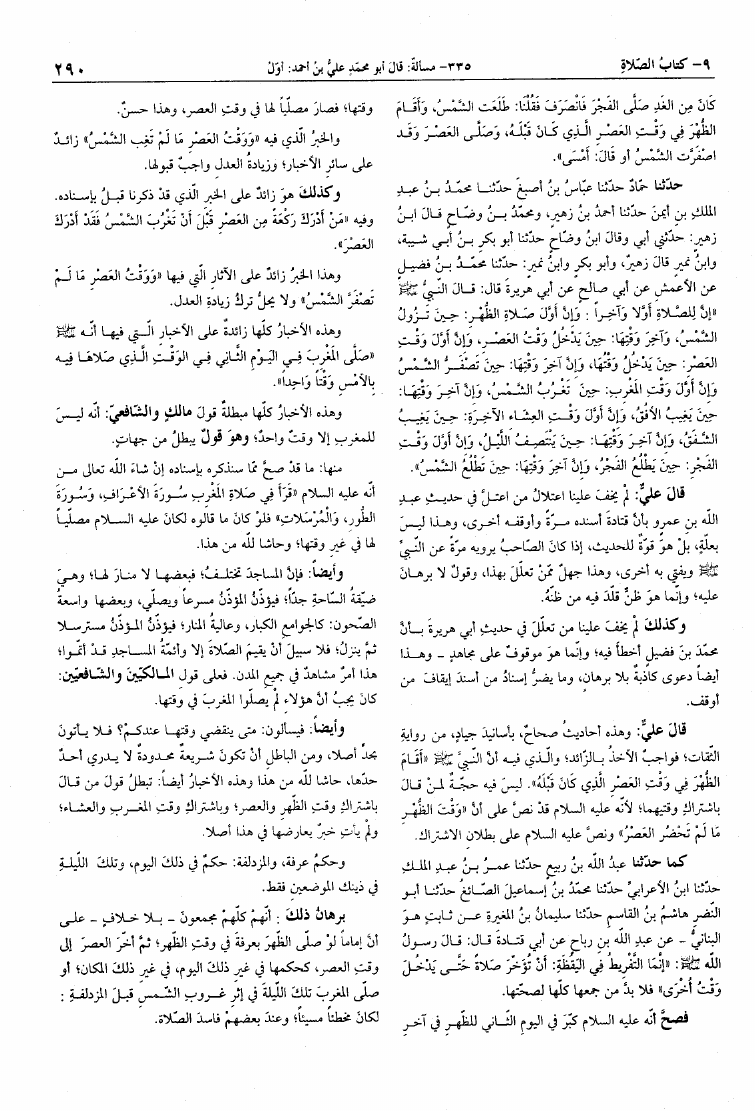 ٩- كتابُ الصّلاةِ
٣٣٥- مسألة: قالَ أبو محمّدٍ عليُّ بنُ أحمد: أوّلُ
٢٩٠
كَانَ مِن الغَدِ صَلَّى الفَجْرَ فَانْصَرَفَ فَقُلْنَا: طَلَعَت الشَّمْسُ، وَأَقَامَ
الظُّهْرَ فِي وَقْتِ العَصْرِ الَّذِي كَانَ قَبْلَهُ، وَصَلَّى العَصْرَ وَقَد
اصْفَرَّت الشَّمْسُ أو قَالَ: أَمْسَى».
حدّثنا حُمامٌ حدّثنا عبّاسُ بنُ أصبغَ حدّثنا محمّدُ بنُ عبدِ
الملكِ بنِ أيمنَ حدّثنا أحمدُ بنُ زهيرٍ، ومحمّدُ بنُ وضّاحٍ قالَ ابنُ
زهيرٍ: حدّثني أبي وقالَ ابنُ وضّاحٍ حدّثنا أبو بكرِ بنُ أبي شيبة،
وابنُ نميرٍ قالَ زهيرٌ، وأبو بكرٍ وابنُ نميرٍ: حدّثنا محمّدُ بنُ فضيلٍ
عن الأعمشِ عن أبي صالحٍ عن أبي هريرةَ قالَ: قالَ النّبيُّ ﷺ
«إنَّ لِلصَّلاةِ أَوَّلا وَآخِراً: وَإِنَّ أَوَّلَ صَلاةِ الظُّهْرِ: حِينَ تَزُولُ
الشَّمْسُ، وَآخِرَ وَقْتِهَا: حِينَ يَدْخُلُ وَقْتُ العَصْرِ، وَإِنَّ أَوَّلَ وَقْتِ
العَصْرِ: حِينَ يَدْخُلُ وَقْتُهَا، وَإِنَّ آخِرَ وَقْتِهَا: حِينَ تَصْفَرُّ الشَّمْسُ
وَإِنَّ أَوَّلَ وَقْتِ المَغْرِبِ: حِينَ تَغْرُبُ الشَّمْسُ، وَإِنَّ آخِرَ وَقْتِهَا:
حِينَ يَغِيبُ الأُفُقُ، وَإِنَّ أَوَّلَ وَقْتِ العِشَاءِ الآخِرَةِ: حِينَ يَغِيبُ
الشَّفَقُ، وَإِنَّ آخِرَ وَقْتِهَا: حِينَ يَنْتَصِفُ اللَّيْلُ، وَإِنَّ أَوَّلَ وَقْتِ
الفَجْرِ: حِينَ يَطْلُعُ الفَجْرُ، وَإِنَّ آخِرَ وَقْتِهَا: حِينَ تَطْلُعُ الشَّمْسُ».
قالَ عليٌّ: لمْ يخفَ علينا اعتلالُ من اعتلَّ في حديثِ عبدِ
اللّه بنِ عمرو بأنَّ قتادةَ أسندَه مرّةً وأوقفه أخرى، وهذا ليسَ
بعلّةٍ، بلْ هوَ قوّةٌ للحديثِ، إذا كانَ الصّاحبُ يرويه مرّةً عن النّبيِّ
ﷺ ويفتي به أخرى، وهذا جهلٌ ممّنْ تعلّلَ بهذا، وقولٌ لا برهانَ
عليه؛ وإنّما هوَ ظنٌّ قلّدَ فيه من ظنَّهُ.
وكذلكَ لمْ يخفَ علينا من تعلّلَ في حديثِ أبي هريرةَ بأنَّ
محمّدَ بنَ فضيلٍ أخطأَ فيه؛ وإنّما هوَ موقوفٌ على مجاهدٍ - وهذا
أيضاً دعوى كاذبةٌ بلا برهانٍ، وما يضرُّ إسنادُ من أسندَ إيقافَ من
أوقف.
قالَ عليٌّ: وهذه أحاديثُ صحاحٌ، بأسانيدَ جيادٍ، من روايةِ
الثّقاتِ؛ فواجبٌ الأخذُ بالزّائدِ؛ والّذي فيه أنَّ النّبيَّ ﷺ «أَقَامَ
الظُّهْرَ فِي وَقْتِ العَصْرِ الَّذِي كَانَ قَبْلَهُ». ليسَ فيه حجّةٌ لمنْ قالَ
باشتراكِ وقتيهما؛ لأنّه عليه السلام قدْ نصَّ على أنَّ «وَقْتَ الظُّهْرِ
مَا لَمْ تَحْضُر العَصْرُ» ونصَّ عليه السلام على بطلانِ الاشتراك.
كما حدّثنا عبدُ اللّه بنُ ربيعٍ حدّثنا عمرُ بنُ عبدِ الملكِ
حدّثنا ابنُ الأعرابيِّ حدّثنا محمّدُ بنُ إسماعيلَ الصّائغُ حدّثنا أبو
النّضرِ هاشمُ بنُ القاسمِ حدّثنا سليمانُ بنُ المغيرةِ عن ثابتٍ هوَ
البنانيُّ - عن عبدِ اللّه بنِ رباحٍ عن أبي قتادةَ قالَ: قالَ رسولُ
اللّه ﷺ: «إِنَّمَا التَّفْرِيطُ فِي اليَقَظَةِ: أَنْ تُؤَخّرَ صَلاةً حَتَّى يَدْخُلَ
وَقْتُ أُخْرَى» فلا بدَّ من جمعها كلّها لصحّتها.
فصحَّ أنّه عليه السلام كبّرَ في اليومِ الثّاني للظّهرِ في آخرِ
وقتها؛ فصارَ مصلّياً لها في وقتِ العصرِ، وهذا حسنٌ.
والخبرُ الّذي فيه «وَوَقْتُ العَصْرِ مَا لَمْ تَغِبِ الشَّمْسُ» زائدٌ
على سائرِ الأخبارِ؛ وزيادةُ العدلِ واجبٌ قبولُها.
وكذلكَ هوَ زائدٌ على الخبرِ الّذي قدْ ذكرنا قبلُ بإسناده.
وفيه «مَنْ أَدْرَكَ رَكْعَةً مِن العَصْرِ قَبْلَ أَنْ تَغْرُبَ الشَّمْسُ فَقَدْ أَدْرَكَ
العَصْرَ».
وهذا الخبرُ زائدٌ على الآثارِ الّتي فيها «وَوَقْتُ العَصْرِ مَا لَمْ
تَصْفَرَّ الشَّمْسُ» ولا يحلُّ تركُ زيادةِ العدل.
وهذه الأخبارُ كلّها زائدةٌ على الأخبارِ الّتي فيها أنّه ﷺ
«صَلَّى المَغْرِبَ فِي اليَوْمِ الثَّانِي فِي الوَقْتِ الَّذِي صَلاهَا فِيهِ
بِالأَمْسِ وَقْتاً وَاحِداً».
وهذه الأخبارُ كلّها مبطلةٌ قولَ مالكٍ والشّافعيِّ: أنّه ليسَ
للمغربِ إلا وقتٌ واحدٌ؛ وهوَ قولٌ يبطلُ من جهاتٍ.
منها: ما قدْ صحَّ ممّا سنذكره بإسناده إنْ شاءَ اللّه تعالى من
أنّه عليه السلام «قَرَأَ فِي صَلاةِ المَغْرِبِ سُورَةَ الأَعْرَافِ، وَسُورَةَ
الطُّورِ، وَالْمُرْسَلاتِ» فلوْ كانَ ما قالوه لكانَ عليه السلام مصلّياً
لها في غيرِ وقتها؛ وحاشا للّه من هذا.
وأيضاً: فإنَّ المساجدَ تختلفُ؛ فبعضها لا منارَ لها؛ وهيَ
ضيّقةُ السّاحةِ جدّاً؛ فيؤذّنُ المؤذّنُ مسرعاً ويصلّي، وبعضها واسعةُ
الصّحونِ: كالجوامعِ الكبارِ، وعاليةُ المنارِ؛ فيؤذّنُ المؤذّنُ مسترسلا
ثمَّ ينزلُ؛ فلا سبيلَ أنْ يقيمَ الصّلاةَ إلا وأئمّةُ المساجدِ قدْ أتمّوا؛
هذا أمرٌ مشاهدٌ في جميعِ المدن. فعلى قولِ المالكيّينَ والشّافعيّينَ:
كانَ يجبُ أنَّ هؤلاءِ لمْ يصلّوا المغربَ في وقتِها.
وأيضاً: فيسألونَ: متى ينقضي وقتها عندكمْ؟ فلا يأتونَ
بحدٍّ أصلا، ومن الباطلِ أنْ تكونَ شريعةٌ محدودةٌ لا يدري أحدٌ
حدّها، حاشا للّه من هذا وهذه الأخبارُ أيضاً: تبطلُ قولَ من قالَ
باشتراكِ وقتِ الظّهرِ والعصرِ؛ وباشتراكِ وقتِ المغربِ والعشاءِ؛
ولمْ يأتِ خبرٌ يعارضها في هذا أصلا.
وحكمُ عرفةَ، والمزدلفةِ: حكمٌ في ذلكَ اليومِ، وتلكَ اللّيلةِ
في ذينكَ الموضعينِ فقط.
برهانُ ذلكَ : أنّهمْ كلّهمْ مجمعونَ - بلا خلافٍ - على
أنَّ إماماً لوْ صلّى الظّهرَ بعرفةَ في وقتِ الظّهرِ؛ ثمَّ أخّرَ العصرَ إلى
وقتِ العصرِ، كحكمها في غيرِ ذلكَ اليومِ، في غيرِ ذلكَ المكانِ؛ أو
صلّى المغربَ تلكَ اللّيلةَ في إثرِ غروبِ الشّمسِ قبلَ المزدلفةِ :
لكانَ مخطئاً مسيئاً؛ وعندَ بعضهمْ فاسدَ الصّلاة.